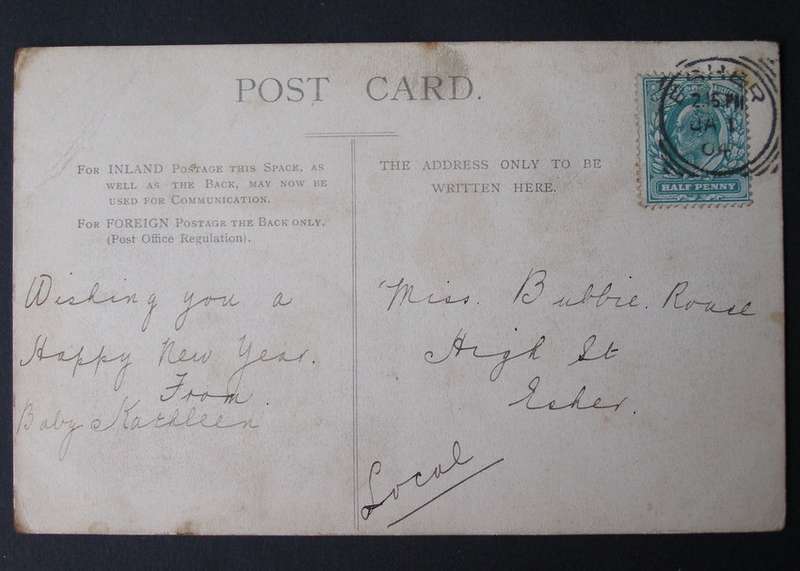 POST CARD.
FOR INLAND POSTAGE THIS SPACE, AS
WELL AS THE BACK, MAY NOW BE
USED FOR COMMUNICATION.
FOR FOREIGN POSTAGE THE BACK ONLY.
(Post Office Regulation).
THE ADDRESS ONLY TO BE
WRITTEN HERE.
ESHER
2.15 PM
JA 1
04
HALF PENNY
Wishing you a
Happy New Year.
From
Baby Kathleen
Miss. Bubbie. Rouse
High St
Esher.
Local